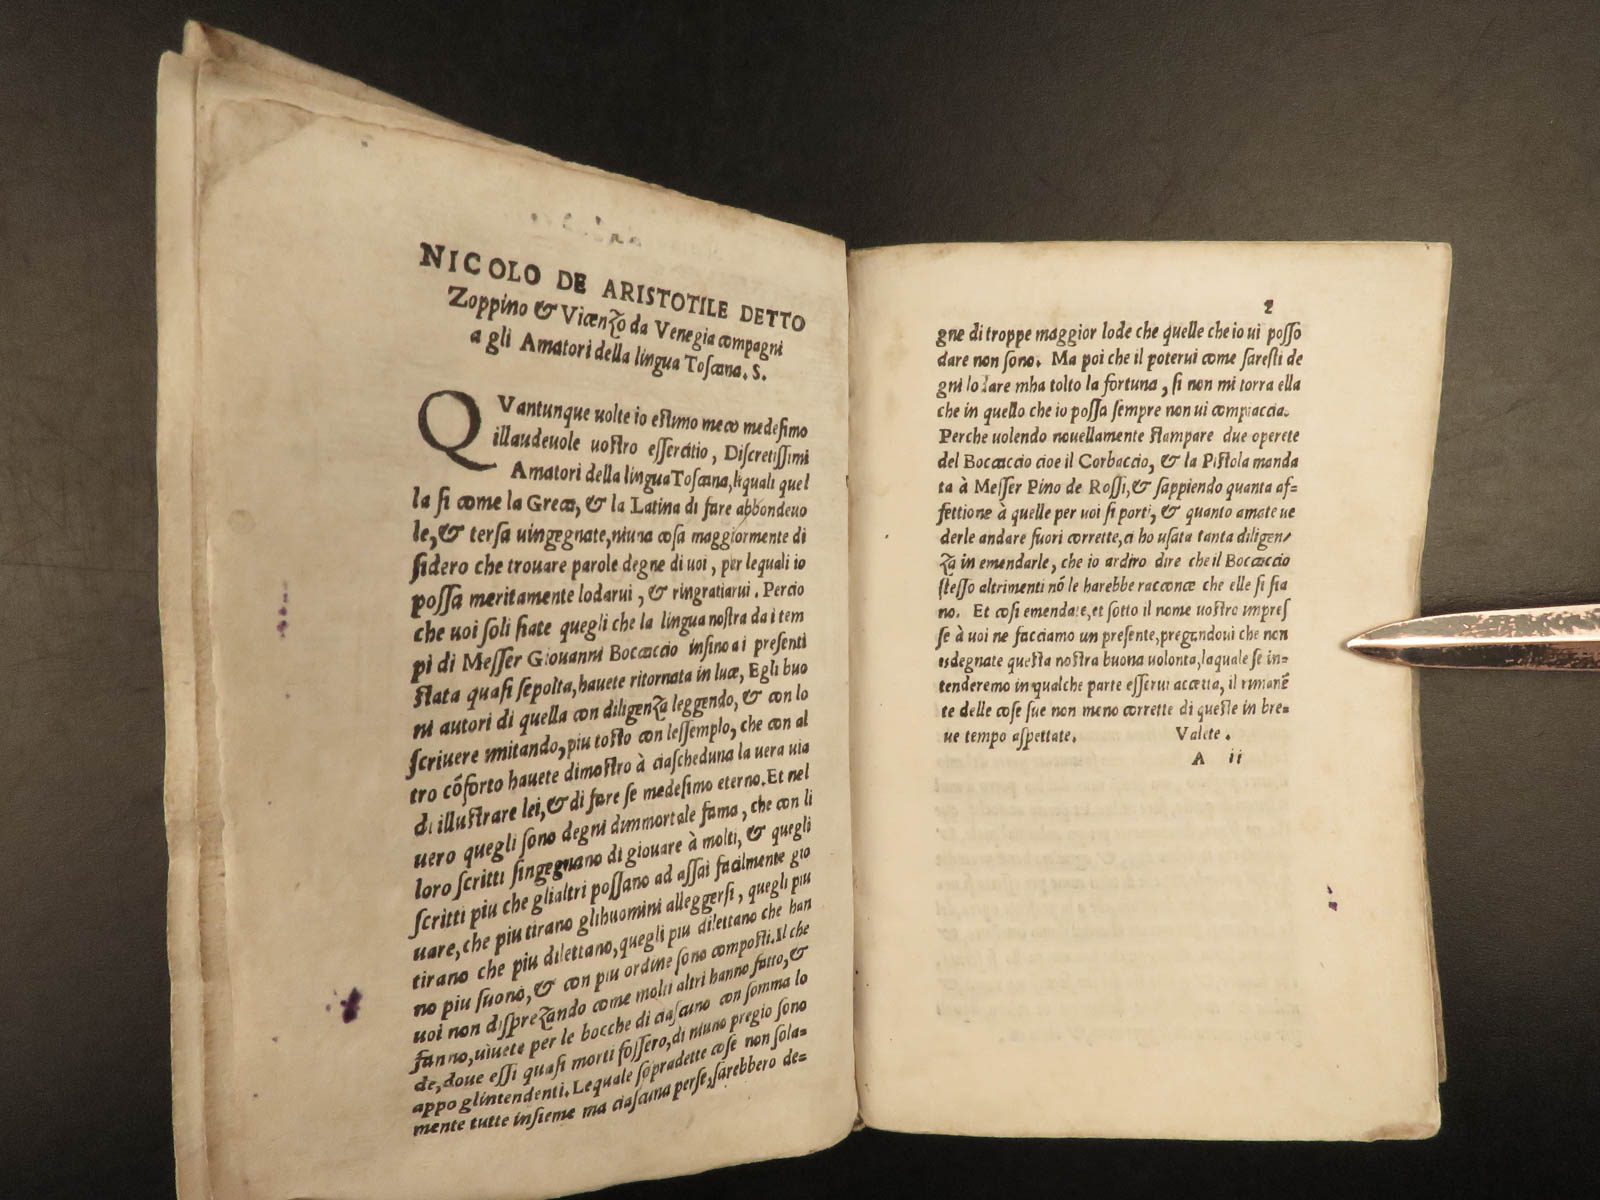 NICOLO DE ARISTOTILE DETTO
Zoppino & Vicenzo da Venegia compagni
a gli Amatori della lingua Toscana. S.
QVantunque uolte io estimo meco medesimo
illaudeuole uostro essercitio, Discretissimi
Amatori della lingua Toscana, liquali quel
la si come la Greca, & la Latina di fare abbondeuo
le, & tersa uingegnate, niuna cosa maggiormente di
sidero che trouare parole degne di uoi, per lequali io
possa meritamente lodarui, & ringratiarui. Percio
che uoi soli siate quegli che la lingua nostra da i tem
pi di Messer Giouanni Boccaccio insino a i presenti
stata quasi sepolta, hauete ritornata in luce, Egli buo
ni autori di quella con diligenza leggendo, & con lo
scriuere imitando, piu tosto con lessempio, che con al
tro cõforto hauete dimostro à ciascheduna la uera uia
di illustrare lei, & di fare se medesimo eterno. Et nel
uero quegli sono degni dimmortale fama, che con li
loro scritti singegnano di giouare à molti, & quegli
scritti piu che glialtri possano ad assai facilmente gio
uare, che piu tirano glihuomini alleggersi, quegli piu
tirano che piu dilettano, quegli piu dilettano che han
no piu suono, & con piu ordine sono composti. Il che
uoi non disprezando come molti altri hanno fatto, &
fanno, uiuete per le bocche di ciascuno con somma lo
de, doue essi quasi morti fossero, di niuno pregio sono
appo glintendenti. Lequale sopradette cose non sola=
mente tutte insieme ma ciascuna perse, sarebbero de=
2
gne di troppe maggior lode che quelle che io ui posso
dare non sono. Ma poi che il poterui come saresti de
gni lodare mha tolto la fortuna, si non mi torra ella
che in quello che io possa sempre non ui compiaccia.
Perche uolendo nouellamente stampare due operete
del Boccaccio cioe il Corbaccio, & la Pistola manda
ta à Messer Pino de Rossi, & sappiendo quanta af=
fettione à quelle per uoi si porti, & quanto amate ue
derle andare fuori corrette, ci ho usata tanta diligen/
za in emendarle, che io ardiro dire che il Boccaccio
stesso altrimenti nõ le harebbe racconce che elle si sia
no. Et cosi emendate, et sotto il nome uostro impres
se à uoi ne facciamo un presente, pregandoui che non
isdegnate questa nostra buona uolonta, laquale se in=
tenderemo in qualche parte esserui accetta, il rimanẽ
te delle cose sue non meno corrette di queste in bre=
ue tempo aspettate. Valete.
A ii